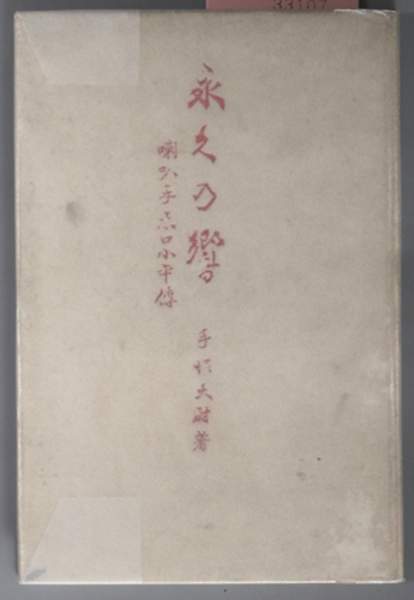 永久乃響
喇叭手木口小平傳
大尉著
33107